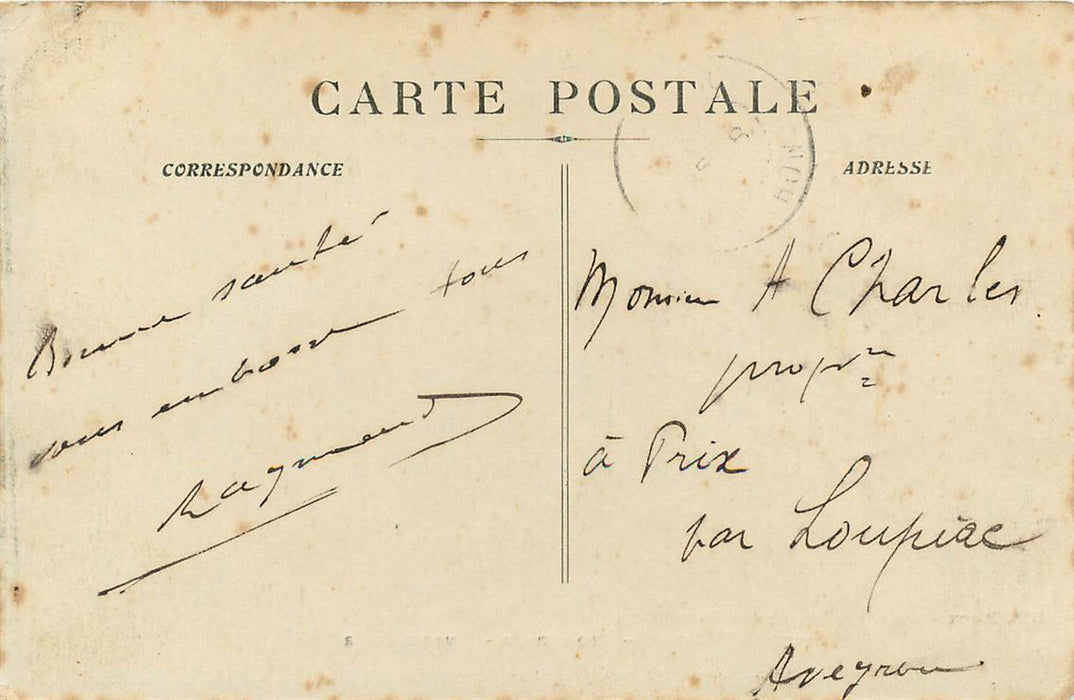 CARTE POSTALE
CORRESPONDANCE
Bonne santé
vous embrasse tous
Raymond
ADRESSE
Monsieur A Charles
propre
à Prix
par Loupiac
Aveyron